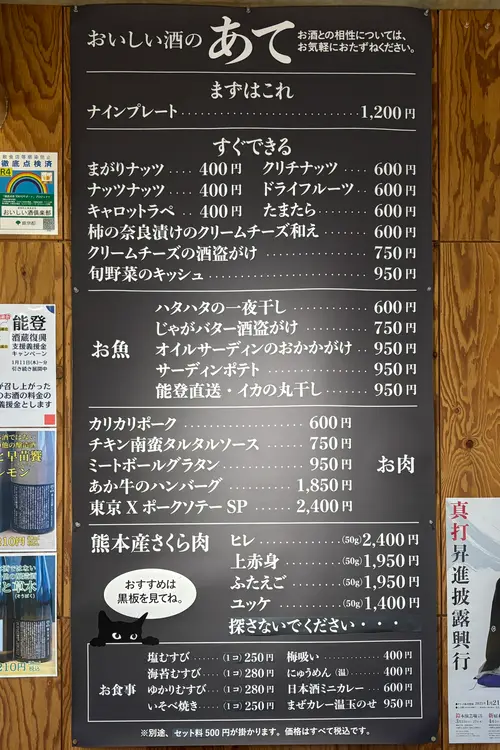 おいしい酒の あて お酒との相性については、
お気軽におたずねください。
まずはこれ
ナインプレート 1,200円
すぐできる
まがりナッツ 400円 クリチナッツ 600円
ナッツナッツ 400円 ドライフルーツ 600円
キャロットラペ 400円 たまたら 600円
柿の奈良漬けのクリームチーズ和え 600円
クリームチーズの酒盗がけ 750円
旬野菜のキッシュ 950円
お魚
ハタハタの一夜干し 600円
じゃがバター酒盗がけ 750円
オイルサーディンのおかかがけ 950円
サーディンポテト 950円
能登直送・イカの丸干し 950円
お肉
カリカリポーク 600円
チキン南蛮タルタルソース 750円
ミートボールグラタン 950円
あか牛のハンバーグ 1,850円
東京Xポークソテー SP 2,400円
熊本産さくら肉
ヒレ (50g) 2,400円
上赤身 (50g) 1,950円
ふたえご (50g) 1,950円
ユッケ (50g) 1,400円
探さないでください・・・
おすすめは
黒板を見てね。
お食事
塩むすび (1コ) 250円 梅吸い 400円
海苔むすび (1コ) 280円 にゅうめん(温) 400円
ゆかりむすび (1コ) 280円 日本酒ミニカレー 600円
いそべ焼き (1コ) 250円 まぜカレー温玉のせ 950円
※別途、セット料500円が掛かります。価格はすべて税込です。
徹底点検済
R4
おいしい酒倶楽部
能登
酒蔵復興
支援義援金
キャンペーン
1月11日(木)〜分
引き続き展開中
が召し上がった
のお酒の料金の
義援金とします
真打昇進披露興行